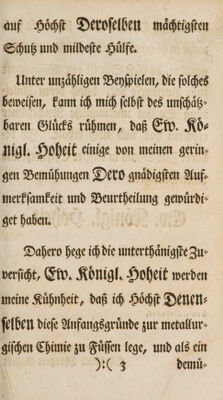 auf Höchst Deroselben mächtigsten
Schutz und mildeste Hülfe.
Unter unzähligen Beyspielen, die solches
beweisen, kann ich mich selbst des unschätz-
baren Glücks rühmen, daß Ew. Kö-
nigl. Hoheit einige von meinen gerin-
gen Bemühungen Dero gnädigsten Auf-
merksamkeit und Beurtheilung gewürdi-
get haben.
Dahero hege ich die unterthänigste Zu-
versicht, Ew. Königl. Hoheit werden
meine Kühnheit, daß ich Höchst Denen-
selben diese Anfangsgründe zur metallur-
gischen Chimie zu Füssen lege, und als ein
):( 3 demü-